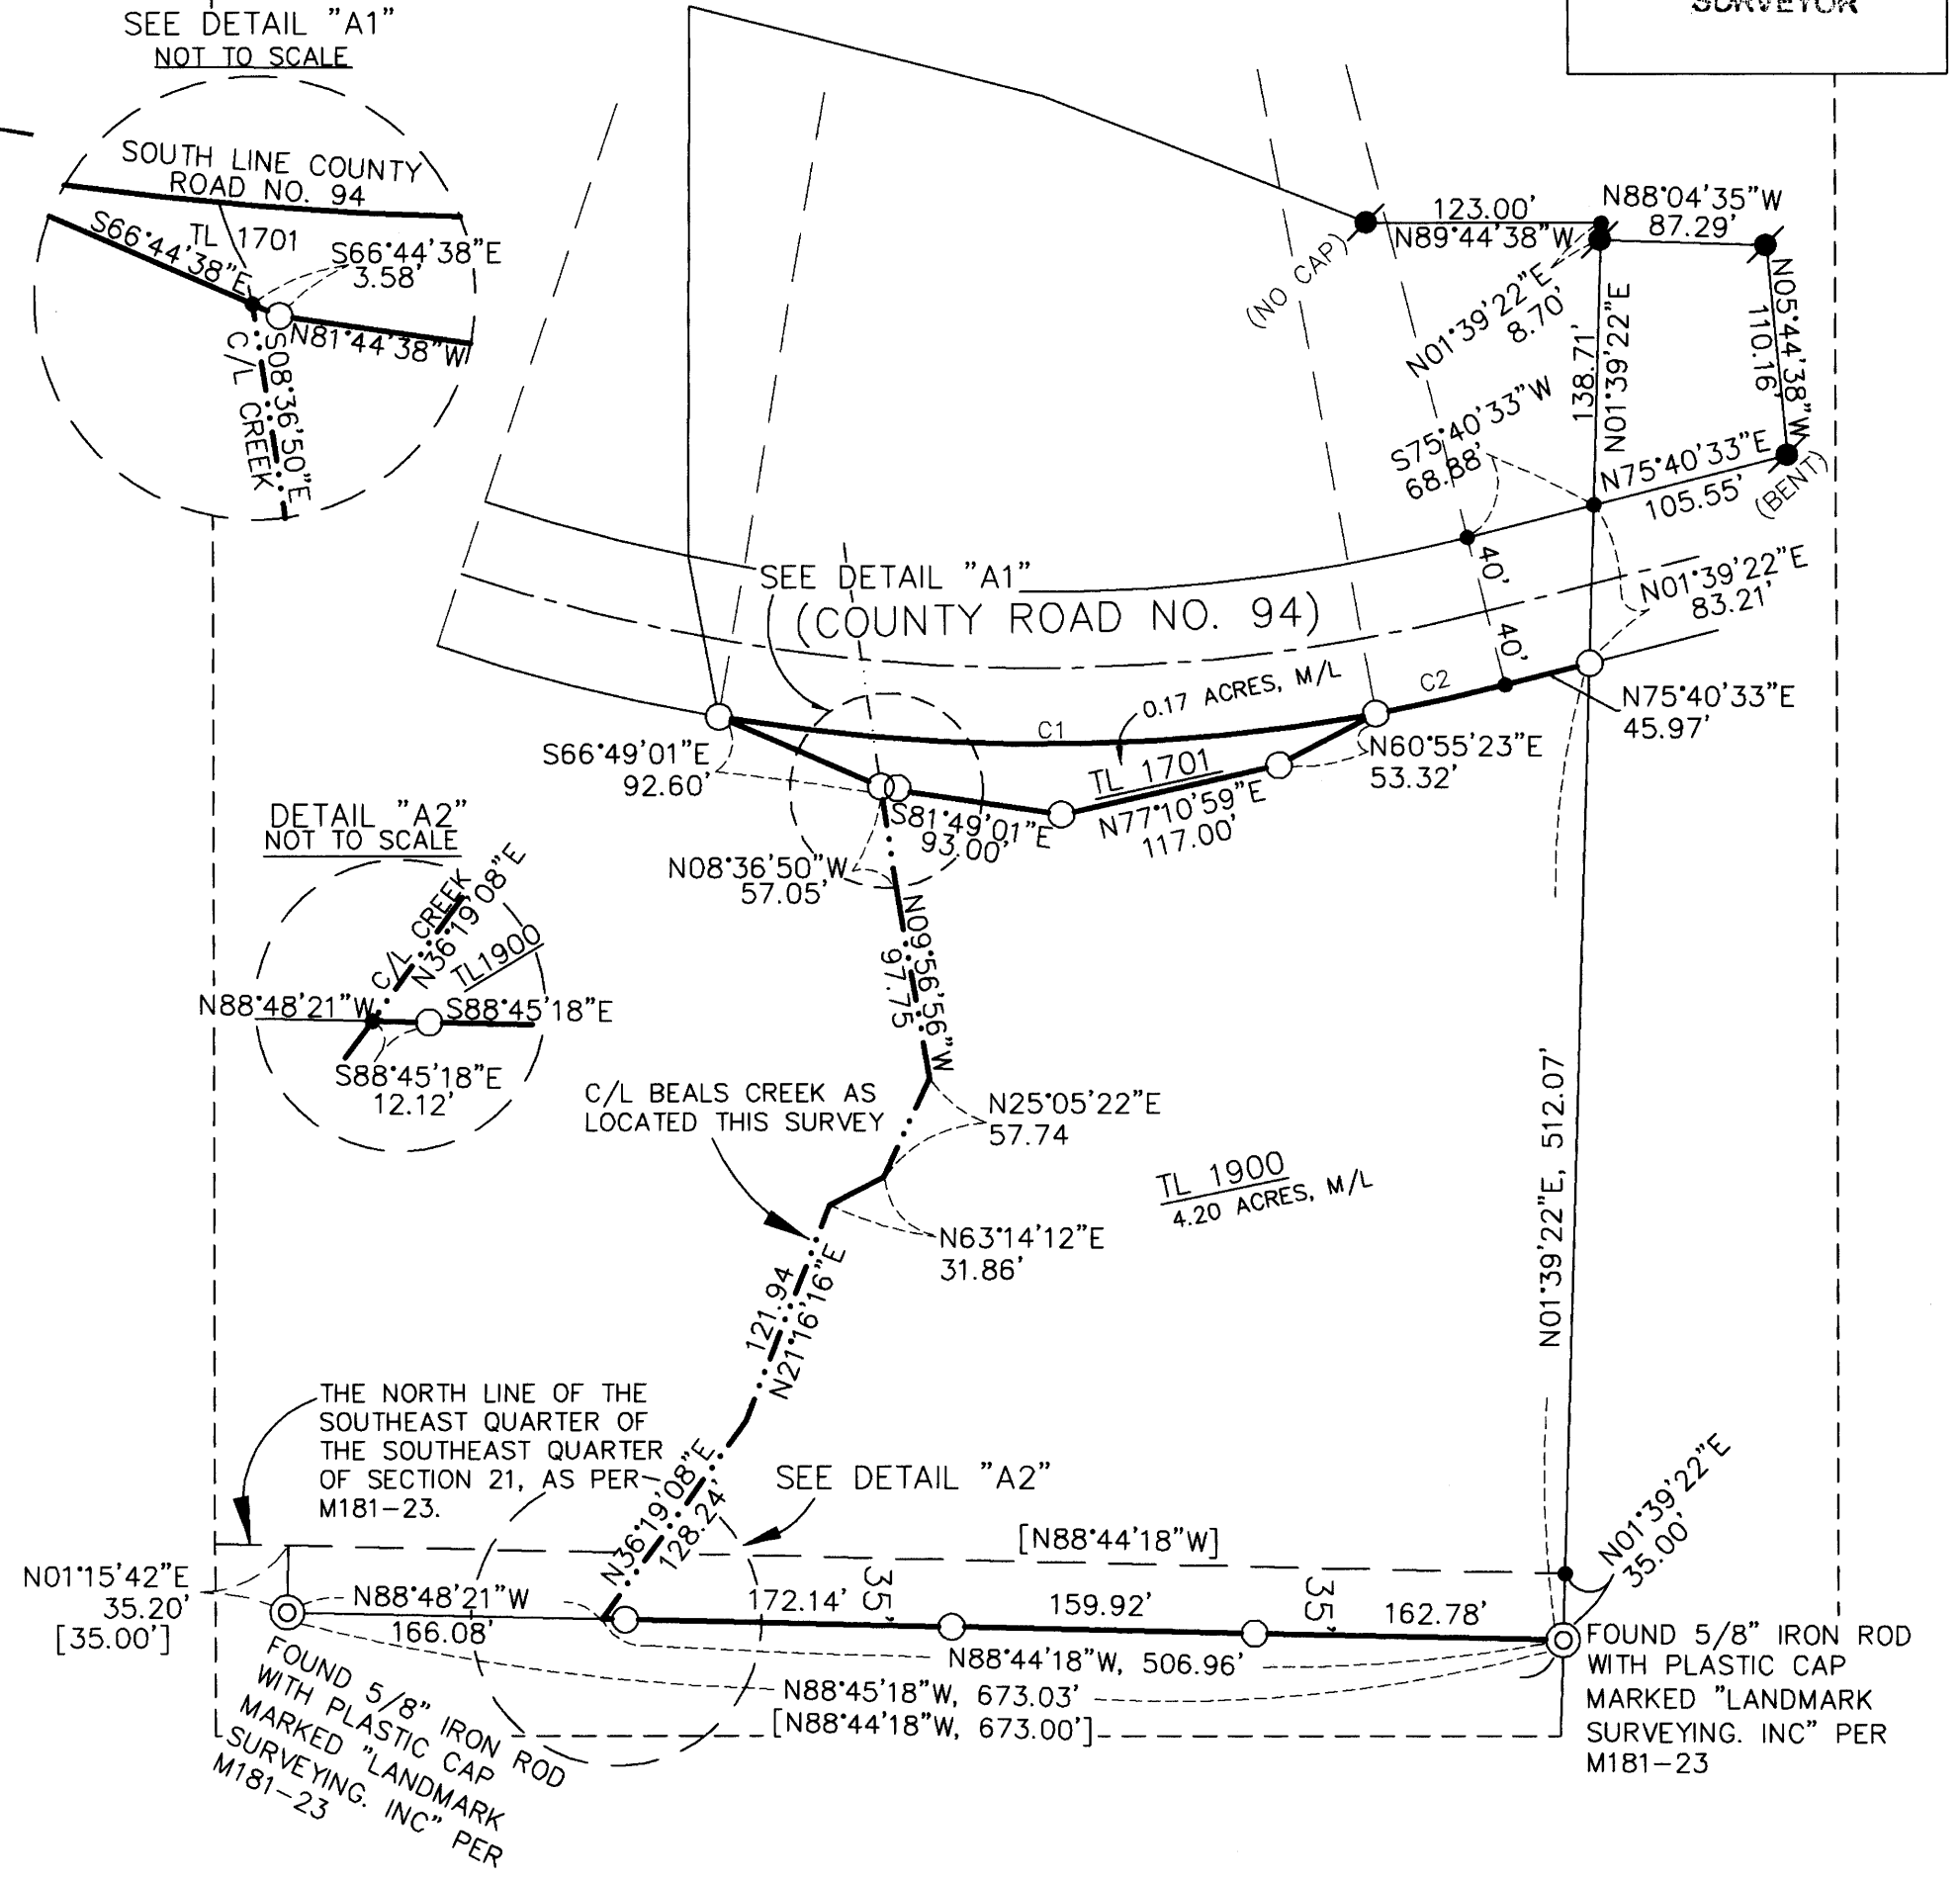 SURVEYOR
SEE DETAIL "A1"
NOT TO SCALE
SOUTH LINE COUNTY
ROAD NO. 94
S66°44'38"E
TL 1701
S66°44'38"E
3.58'
N81°44'38"W
S08°36'50"E
C/L CREEK
123.00'
N89°44'38"W
(NO CAP)
N88°04'35"W
87.29'
N01°39'22"E
8.70'
138.71'
N01°39'22"E
N05°44'38"W
110.16'
S75°40'33"W
68.88'
N75°40'33"E
105.55'
(BENT)
40'
40'
N01°39'22"E
83.21'
SEE DETAIL "A1"
(COUNTY ROAD NO. 94)
0.17 ACRES, M/L
C1
C2
N75°40'33"E
45.97'
S66°49'01"E
92.60'
TL 1701
N60°55'23"E
53.32'
S81°49'01"E
93.00'
N77°10'59"E
117.00'
N08°36'50"W
57.05'
DETAIL "A2"
NOT TO SCALE
C/L CREEK
N36°19'08"E
TL1900
N88°48'21"W
S88°45'18"E
S88°45'18"E
12.12'
N09°56'56"W
97.75
C/L BEALS CREEK AS
LOCATED THIS SURVEY
N25°05'22"E
57.74
N63°14'12"E
31.86'
TL 1900
4.20 ACRES, M/L
N01°39'22"E, 512.07'
121.94
N21°16'16"E
THE NORTH LINE OF THE
SOUTHEAST QUARTER OF
THE SOUTHEAST QUARTER
OF SECTION 21, AS PER
M181-23.
N36°19'08"E
128.24'
SEE DETAIL "A2"
[N88°44'18"W]
N01°39'22"E
35.00'
N01°15'42"E
35.20'
[35.00']
N88°48'21"W
166.08'
172.14'
35'
159.92'
35'
162.78'
N88°44'18"W, 506.96'
N88°45'18"W, 673.03'
[N88°44'18"W, 673.00']
FOUND 5/8" IRON ROD
WITH PLASTIC CAP
MARKED "LANDMARK
SURVEYING. INC" PER
M181-23
FOUND 5/8" IRON ROD
WITH PLASTIC CAP
MARKED "LANDMARK
SURVEYING. INC" PER
M181-23